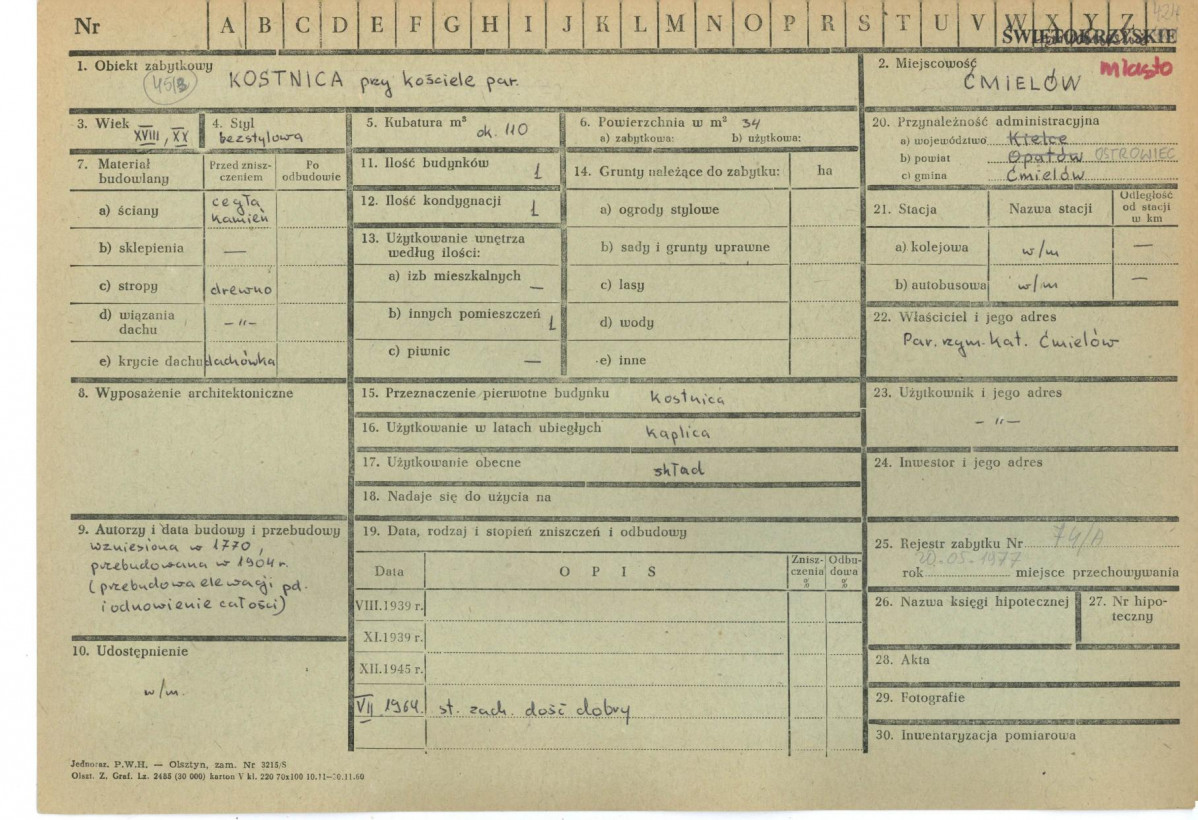 Nr A B C D E F G H I J K L M N O P R S T U V W X Y Z
ŚWIĘTOKRZYSKIE
1. Obiekt zabytkowy
KOSTNICA przy kościele par.
2. Miejscowość
miasto
ĆMIELÓW
3. Wiek
XVIII, XX
4. Styl
bezstylowa
5. Kubatura m³
ok. 110
6. Powierzchnia w m² 34
a) zabytkowa: b) użytkowa:
20. Przynależność administracyjna
a) województwo Kielce
b) powiat Opatów OSTROWIEC
c) gmina Ćmielów
7. Materiał budowlany
Przed znisz-
czeniem
Po
odbudowie
a) ściany cegła
kamień
b) sklepienia —
c) stropy drewno
d) wiązania
dachu — „ —
e) krycie dachu dachówka
11. Ilość budynków 1
12. Ilość kondygnacji 1
13. Użytkowanie wnętrza
według ilości:
a) izb mieszkalnych —
b) innych pomieszczeń 1
c) piwnic —
14. Grunty należące do zabytku: ha
a) ogrody stylowe
b) sady i grunty uprawne
c) lasy
d) wody
e) inne
21. Stacja Nazwa stacji Odległość
od stacji
w km
a) kolejowa w/m —
b) autobusowa w/m —
22. Właściciel i jego adres
Par. rzym. kat. Ćmielów
8. Wyposażenie architektoniczne
15. Przeznaczenie pierwotne budynku kostnica
16. Użytkowanie w latach ubiegłych kaplica
17. Użytkowanie obecne skład
18. Nadaje się do użycia na
23. Użytkownik i jego adres
— „ —
24. Inwestor i jego adres
9. Autorzy i data budowy i przebudowy
wzniesiona w 1770,
przebudowana w 1904 r.
(przebudowa elewacji pd.
i odnowienie całości)
19. Data, rodzaj i stopień zniszczeń i odbudowy
Data O P I S Znisz-
czenia
%
Odbu-
dowa
%
VIII.1939 r.
XI.1939 r.
XII.1945 r.
VII 1964. st. zach. dość dobry
25. Rejestr zabytku Nr 74/A
20.05.1977
rok miejsce przechowywania
26. Nazwa księgi hipotecznej
27. Nr hipo-
teczny
10. Udostępnienie
w/m.
28. Akta
29. Fotografie
30. Inwentaryzacja pomiarowa
Jednoraz. P.W.H. — Olsztyn, zam. Nr 3215/S
Olszt. Z. Graf. Lz. 2485 (30 000) karton V kl. 220 70x100 10.11—30.11.60